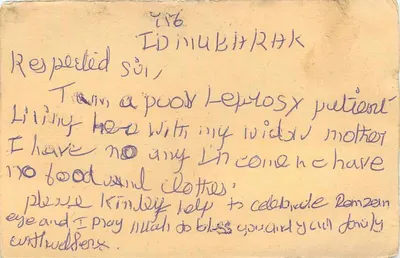 786
ID MUBARAK
Respected sir,
I am a poor Leprosy patient
Living here with my widow mother
I have no any Income n have
no food and clothes.
please kindly help to celebrate Ramzan
eye and I pray much to bless you and your family